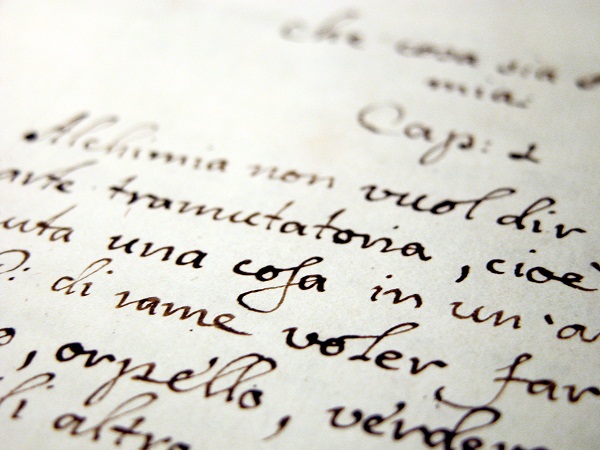 che cosa sia
mia.
Cap: 1
Alchimia non vuol dir
arte tramutatoria, cioè
uta una cosa in un'a
di rame voler far
orpéllo, vérder
altro